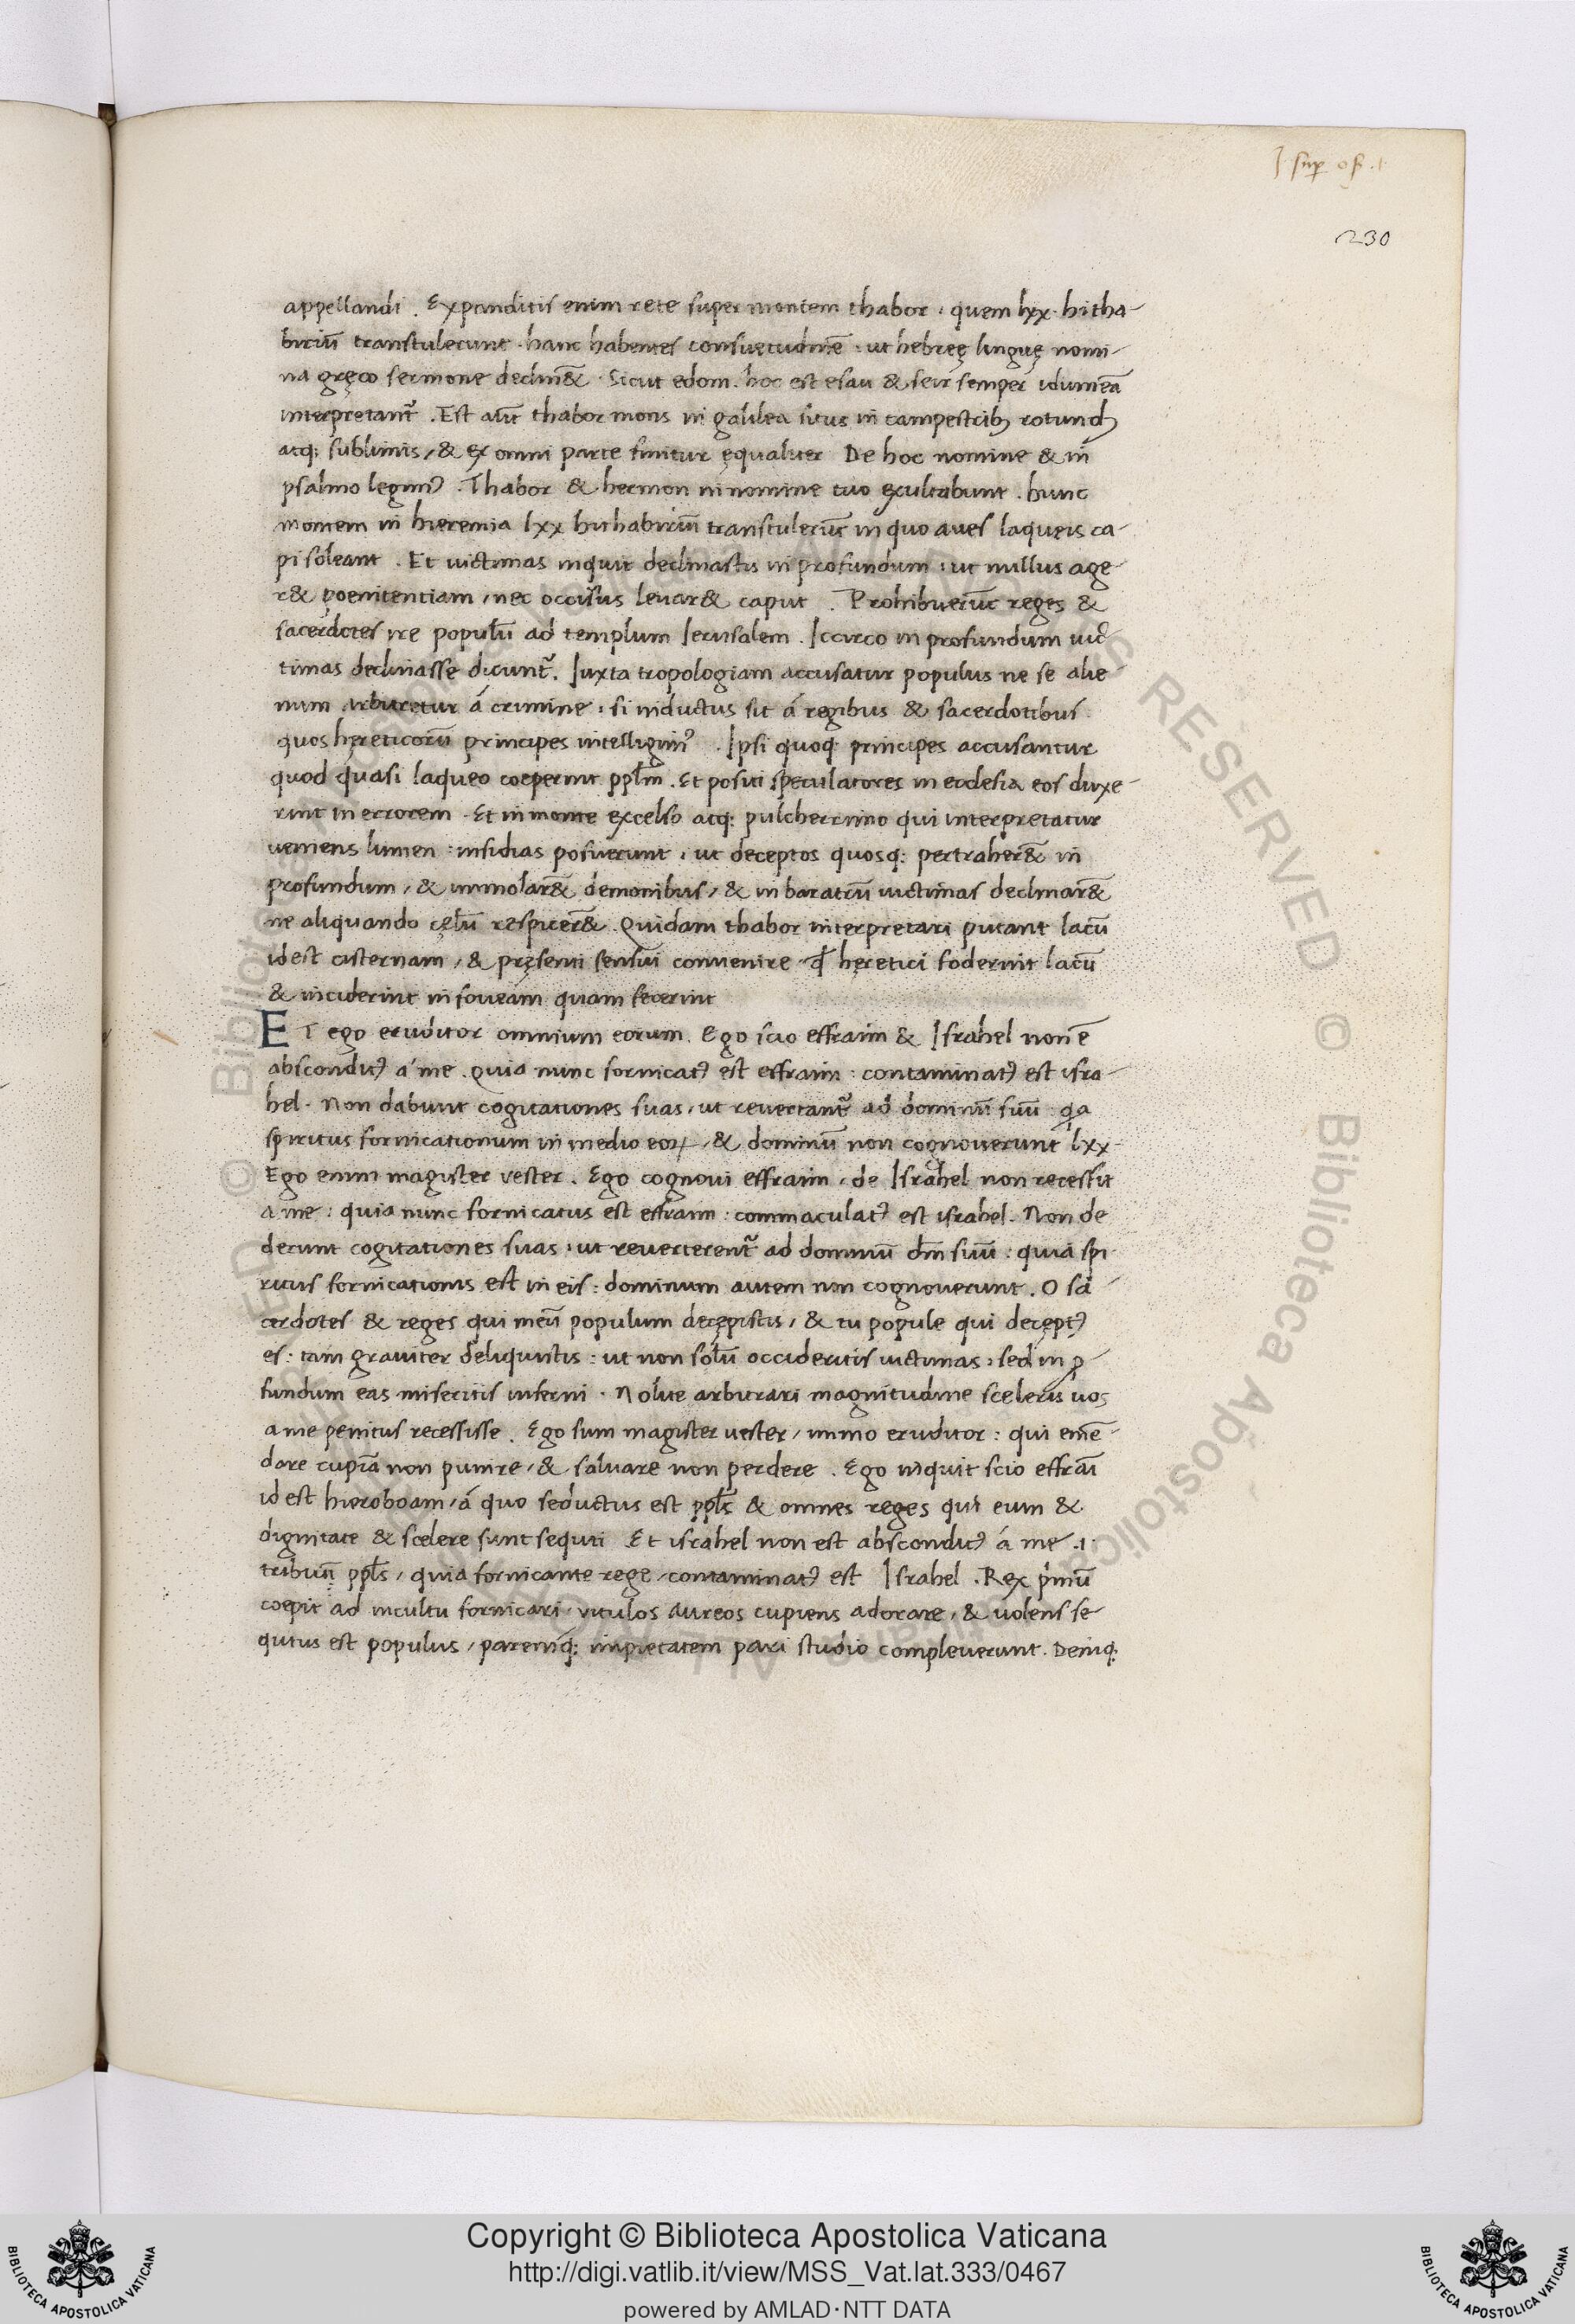 J sup os .1.
230
appellandi . Expanditis enim rete super montem thabor . quem lxx . hitha-
biriū transtulerunt . hanc habentes consuetudinē . ut hebręę linguę nomi-
na gręco sermone declin&̄ . Sicut edom . hoc est esau & seir semper idumęā
interpretant᷑ . Est aūt thabor mons in galilea situs in campestrib; rotund9
atq; sublimis, & ex omni parte finitur ęqualiter De hoc nomine & in
psalmo legim9 . Thabor & hermon in nomine tuo exultabunt . hunc
montem in hieremia lxx hithabiriū transtulerūt in quo aues laqueis ca-
pi soleant . Et uictimas inquit declinastis in profundum : ut nullus age-
r& poenitentiam, nec occisus leuar& caput . Prohibuerūt reges &
sacerdotes ire populū ad templum Ierusalem . Iccirco in profundum uic-
timas declinasse dicunt᷑ . Iuxta tropologiam accusatur populus ne se alie-
num arbitretur á crimine : si inductus sit á regibus & sacerdotibus
quos hęreticorū principes intelligim9 . Ipsi quoq; principes accusantur
quod quasi laqueo coeperint ppl̄m . Et positi speculatores in ecclesia eos duxe-
rint in errorem . Et in monte excelso atq; pulcherrimo qui interpretatur
ueniens lumen : insidias posuerunt . ut deceptos quosq; pertraher&̄ in
profundum, & immolar&̄ demonibus, & in baratrū uictimas declinar&̄
ne aliquando cęlū respicer&̄ . Quidam thabor interpretari putant lacū
id est cisternam, & pręsenti sensui conuenire . qđ hęretici foderint lacū
& inciderint in foueam quam fecerint
ET ego eruditor omnium eorum . Ego scio effraim & Israhel non ē
abscondit9 a me . Quia nunc fornicat9 est effraim : contaminat9 est isra-
hel . Non dabunt cogitationes suas, ut reuertant᷑ ad dominū suū : qa
spiritus fornicationum in medio eoꝝ, & dominū non cognouerunt lxx-
Ego enim magister vester . Ego cognoui effraim, de Israhel non recessit
a me : quia nunc fornicatus est effraim : commaculat9 est israhel . Non de
derunt cogitationes suas : ut reuerterent᷑ ad dominū dm̄ suū : quia spi
ritus fornicationis est in eis : dominum autem non cognouerunt . O sa-
cerdotes & reges qui meū populum decępistis, & tu popule qui decępt9
es : tam grauiter deliquistis : ut non solū occideritis uictimas : sed in ꝓ
fundum eas miseritis inferni . Nolite arbitrari magnitudine sceleris uos
a me penitus recessisse . Ego sum magister uester, immo eruditor : qui emē-
dare cupiā non punire, & saluare non perdere . Ego inquit scio effraī
id est hieroboam, á quo seductus est ppl̄s & omnes reges qui eum &
dignitate & scelere sunt sequti Et israhel non est abscondit9 á me .i.
tribuū ppl̄s, quia fornicante rege, contaminat9 est Israhel . Rex pͥmū
coepit ad incultu fornicari uitulos aureos cupiens adorare, & uolens se-
qutus est populus, paremq; impietatem pari studio compleuerunt . Deniq;
Copyright © Biblioteca Apostolica Vaticana
http://digi.vatlib.it/view/MSS_Vat.lat.333/0467
powered by AMLAD·NTT DATA
BIBLIOTECA APOSTOLICA VATICANA
BIBLIOTECA APOSTOLICA VATICANA